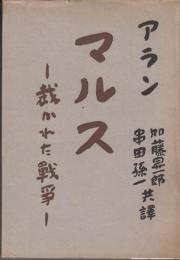 アラン
マルス
―裁かれた戦爭―
加藤昇一郎
串田孫一共譯